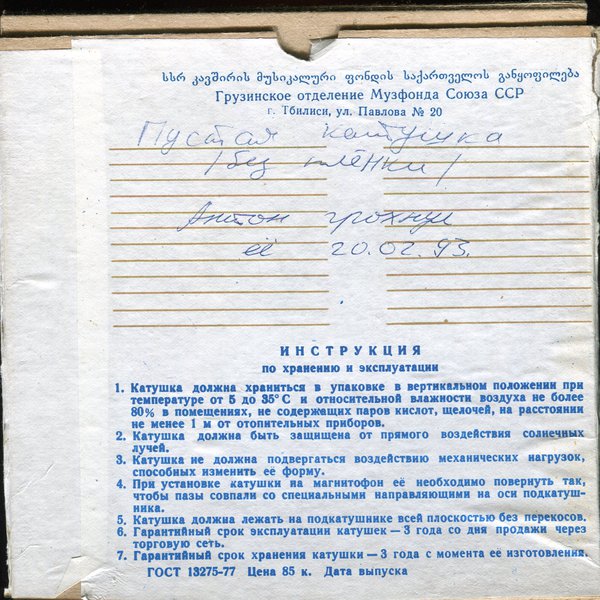 სსრ კავშირის მუსიკალური ფონდის საქართველოს განყოფილება
Грузинское отделение Музфонда Союза ССР
г. Тбилиси, ул. Павлова № 20
Пустая катушка
/без плёнки/
Антон грохнул
её 20.02.93.
ИНСТРУКЦИЯ
по хранению и эксплуатации
1. Катушка должна храниться в упаковке в вертикальном положении при
температуре от 5 до 35° С и относительной влажности воздуха не более
80% в помещениях, не содержащих паров кислот, щелочей, на расстоянии
не менее 1 м от отопительных приборов.
2. Катушка должна быть защищена от прямого воздействия солнечных
лучей.
3. Катушка не должна подвергаться воздействию механических нагрузок,
способных изменить её форму.
4. При установке катушки на магнитофон её необходимо повернуть так,
чтобы пазы совпали со специальными направляющими на оси подкатуш-
ника.
5. Катушка должна лежать на подкатушнике всей плоскостью без перекосов.
6. Гарантийный срок эксплуатации катушек — 3 года со дня продажи через
торговую сеть.
7. Гарантийный срок хранения катушки — 3 года с момента её изготовления.
ГОСТ 13275-77 Цена 85 к. Дата выпуска